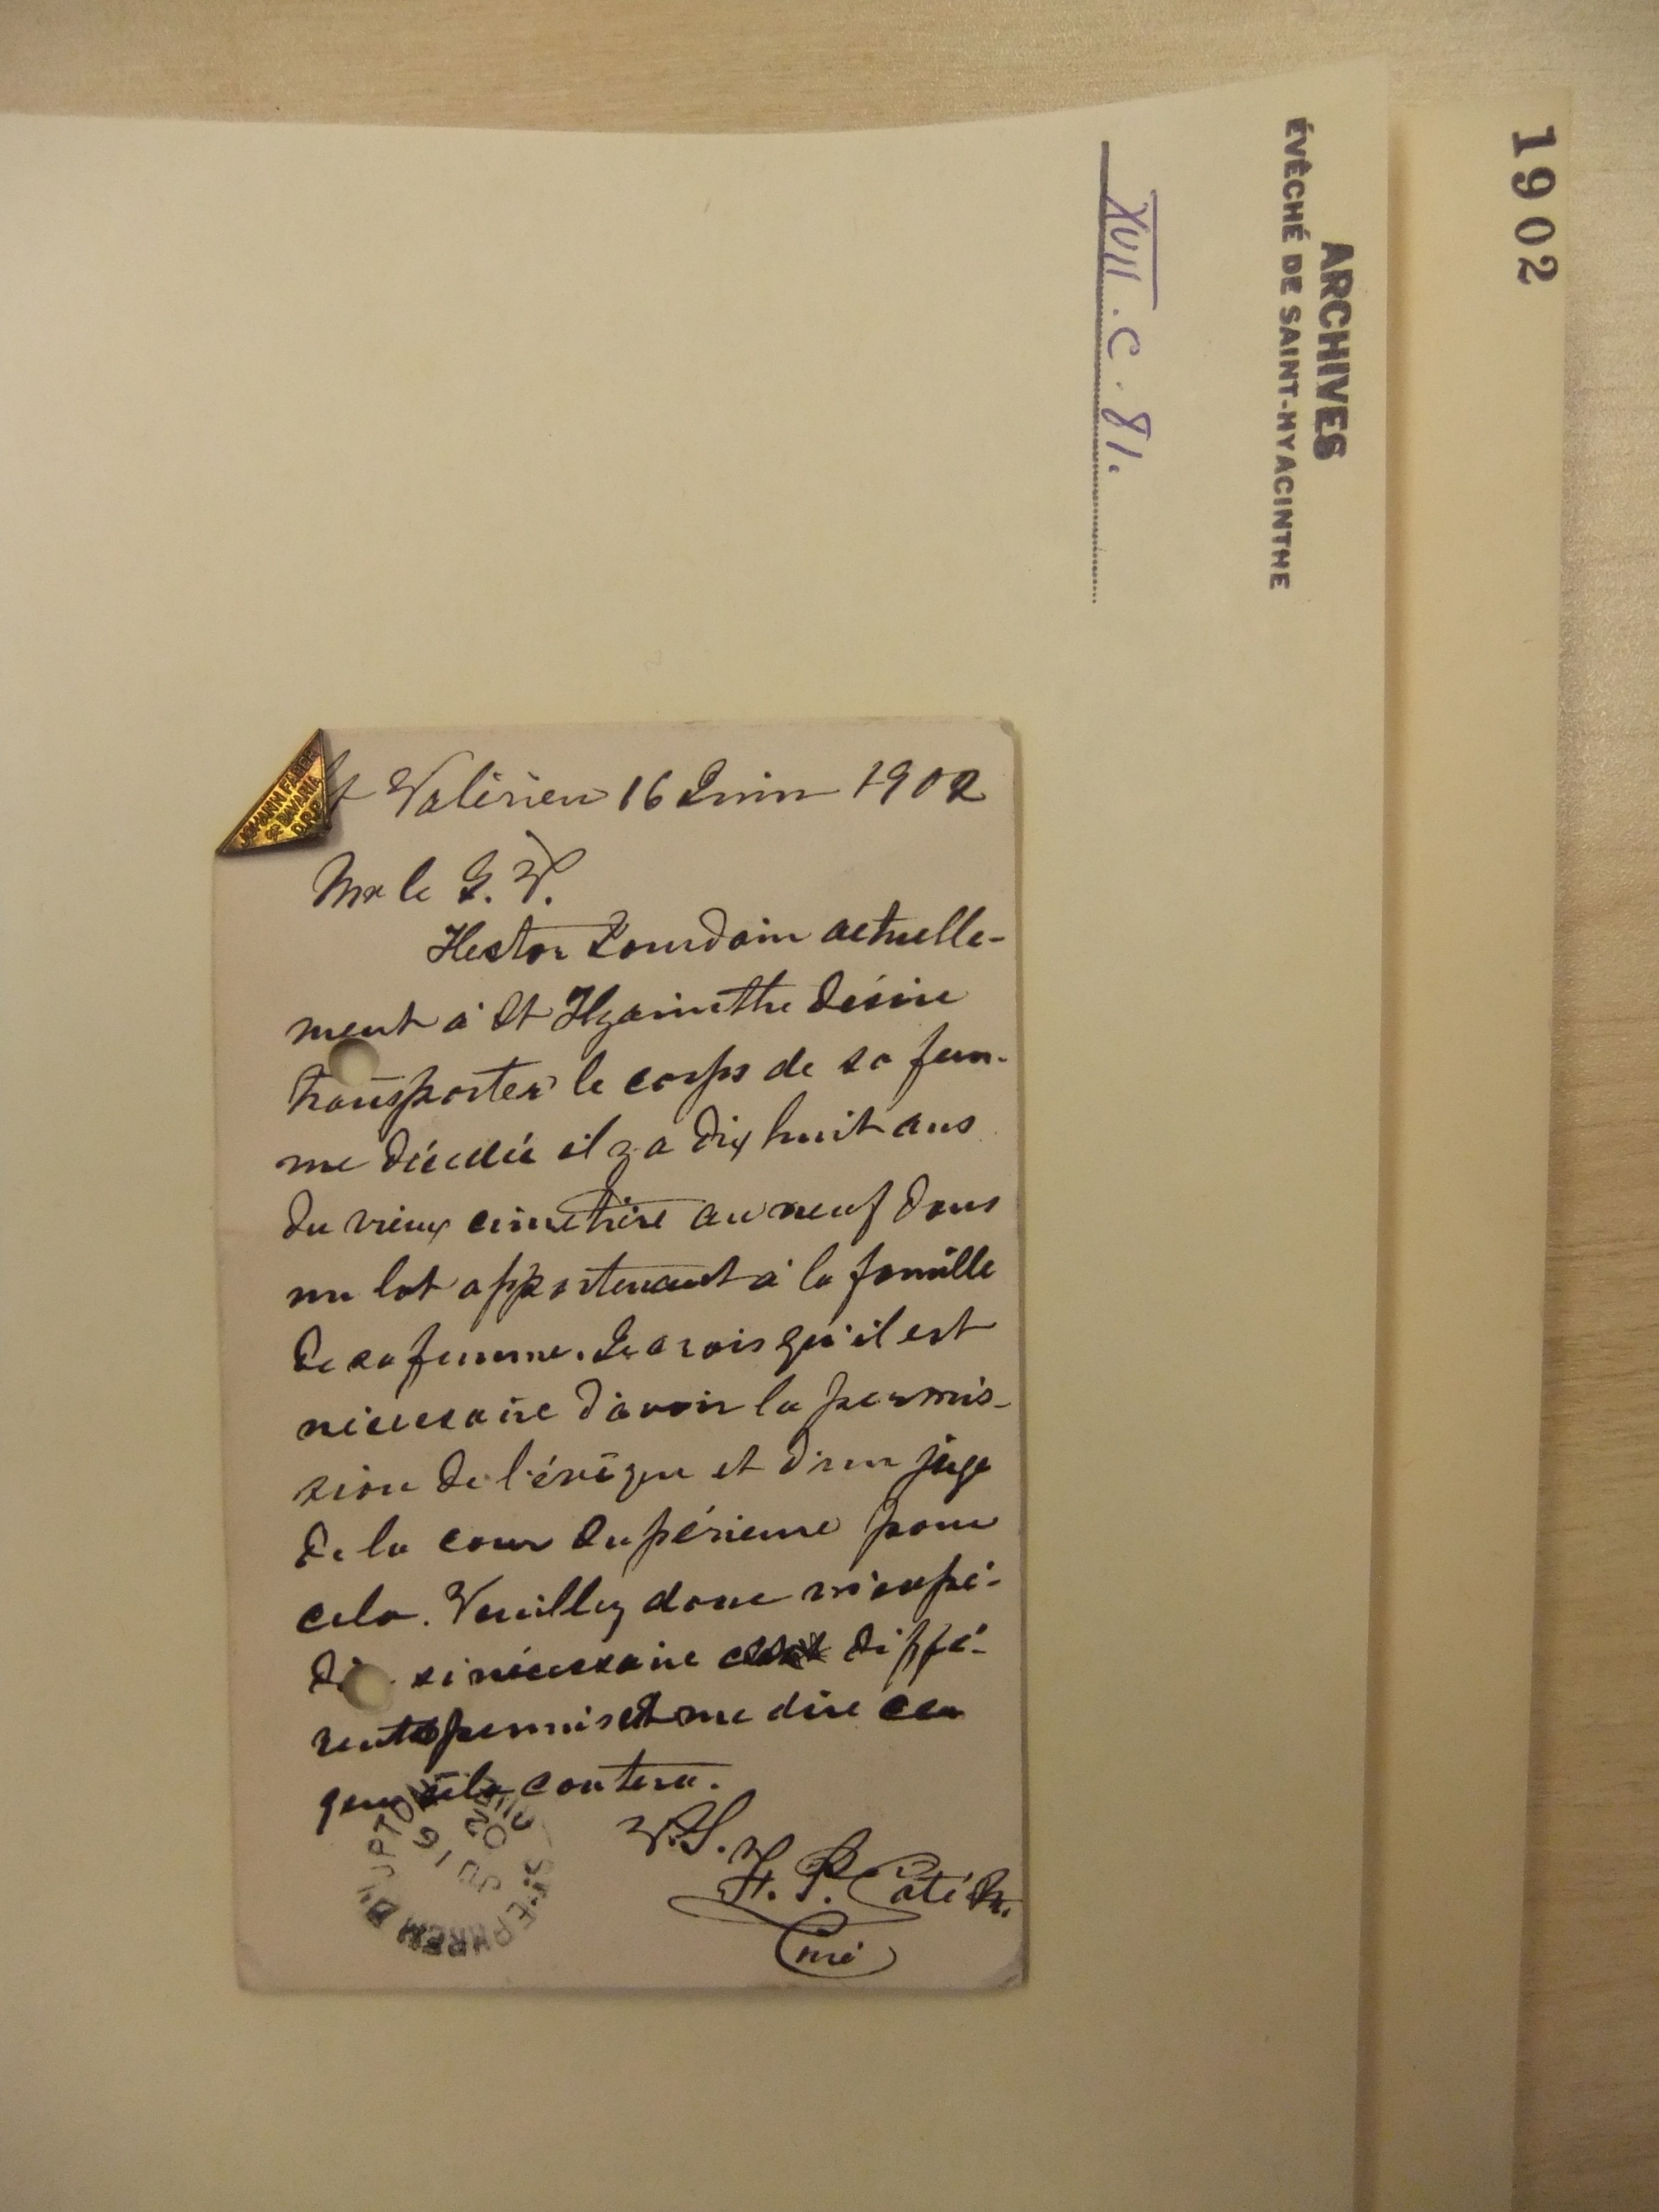 1902
ARCHIVES
ÉVÊCHÉ DE SAINT-HYACINTHE
XVII. C. 81.
JOHANN FABER
BAVARIA
D.R.P.
St Valérien 16 Juin 1902
Mr le G. V.
Hector Jourdain actuelle-
ment à St Hyacinthe désire
transporter le corps de sa fem-
me décédée il y a dix huit ans
du vieux cimetière au neuf dans
un lot appartenant à la famille
de sa femme. Je crois qu'il est
nécessaire d'avoir la permis-
sion de l'évêque et d'un juge
de la cour Supérieure pour
cela. Veuillez donc m'expé-
di si nécessaire diffé-
rents permis et me dire ce
que cela coutera.
V. S.
F. P. Côté Ptr.
Curé
ST-EPHREM D'UPTON
JU 16
02